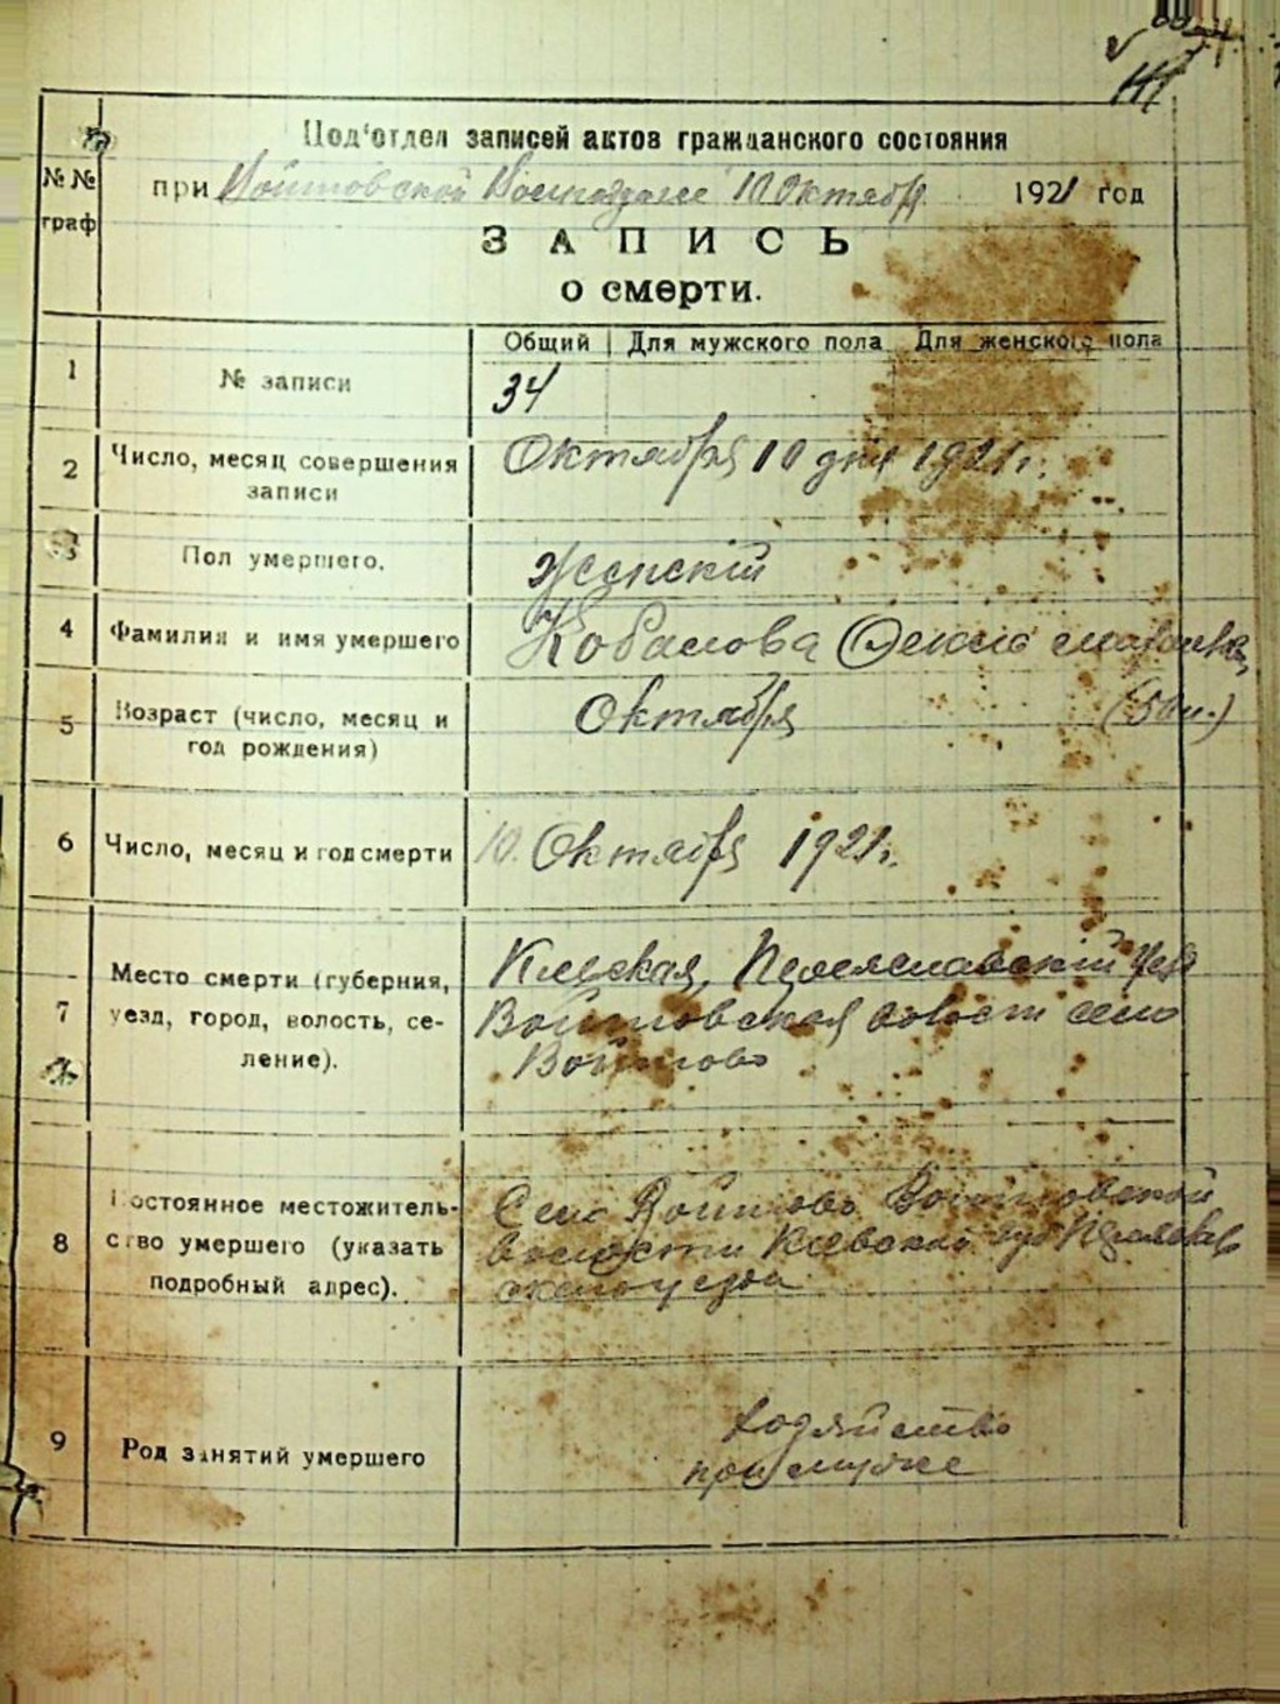 Под'отдел записей актов гражданского состояния
№№ граф
при Войтовской 10 Октября 1921 год
ЗАПИСЬ
о смерти.
Общий Для мужского пола Для женского пола
1 № записи 34
2 Число, месяц совершения записи Октября 10 дня 1921 г.
3 Пол умершего. Женскій
4 Фамилия и имя умершего
5 Возраст (число, месяц и год рождения) Октября
6 Число, месяц и год смерти 10. Октября 1921 г.
7 Место смерти (губерния, уезд, город, волость, селение).
Киевская, Переяславскій уезд
Войтовская волость село
Войтово
8 Постоянное местожительство умершего (указать подробный адрес).
Село Войтово Войтовской
волости Киевской губ
9 Род занятий умершего
хозяйство
при муже